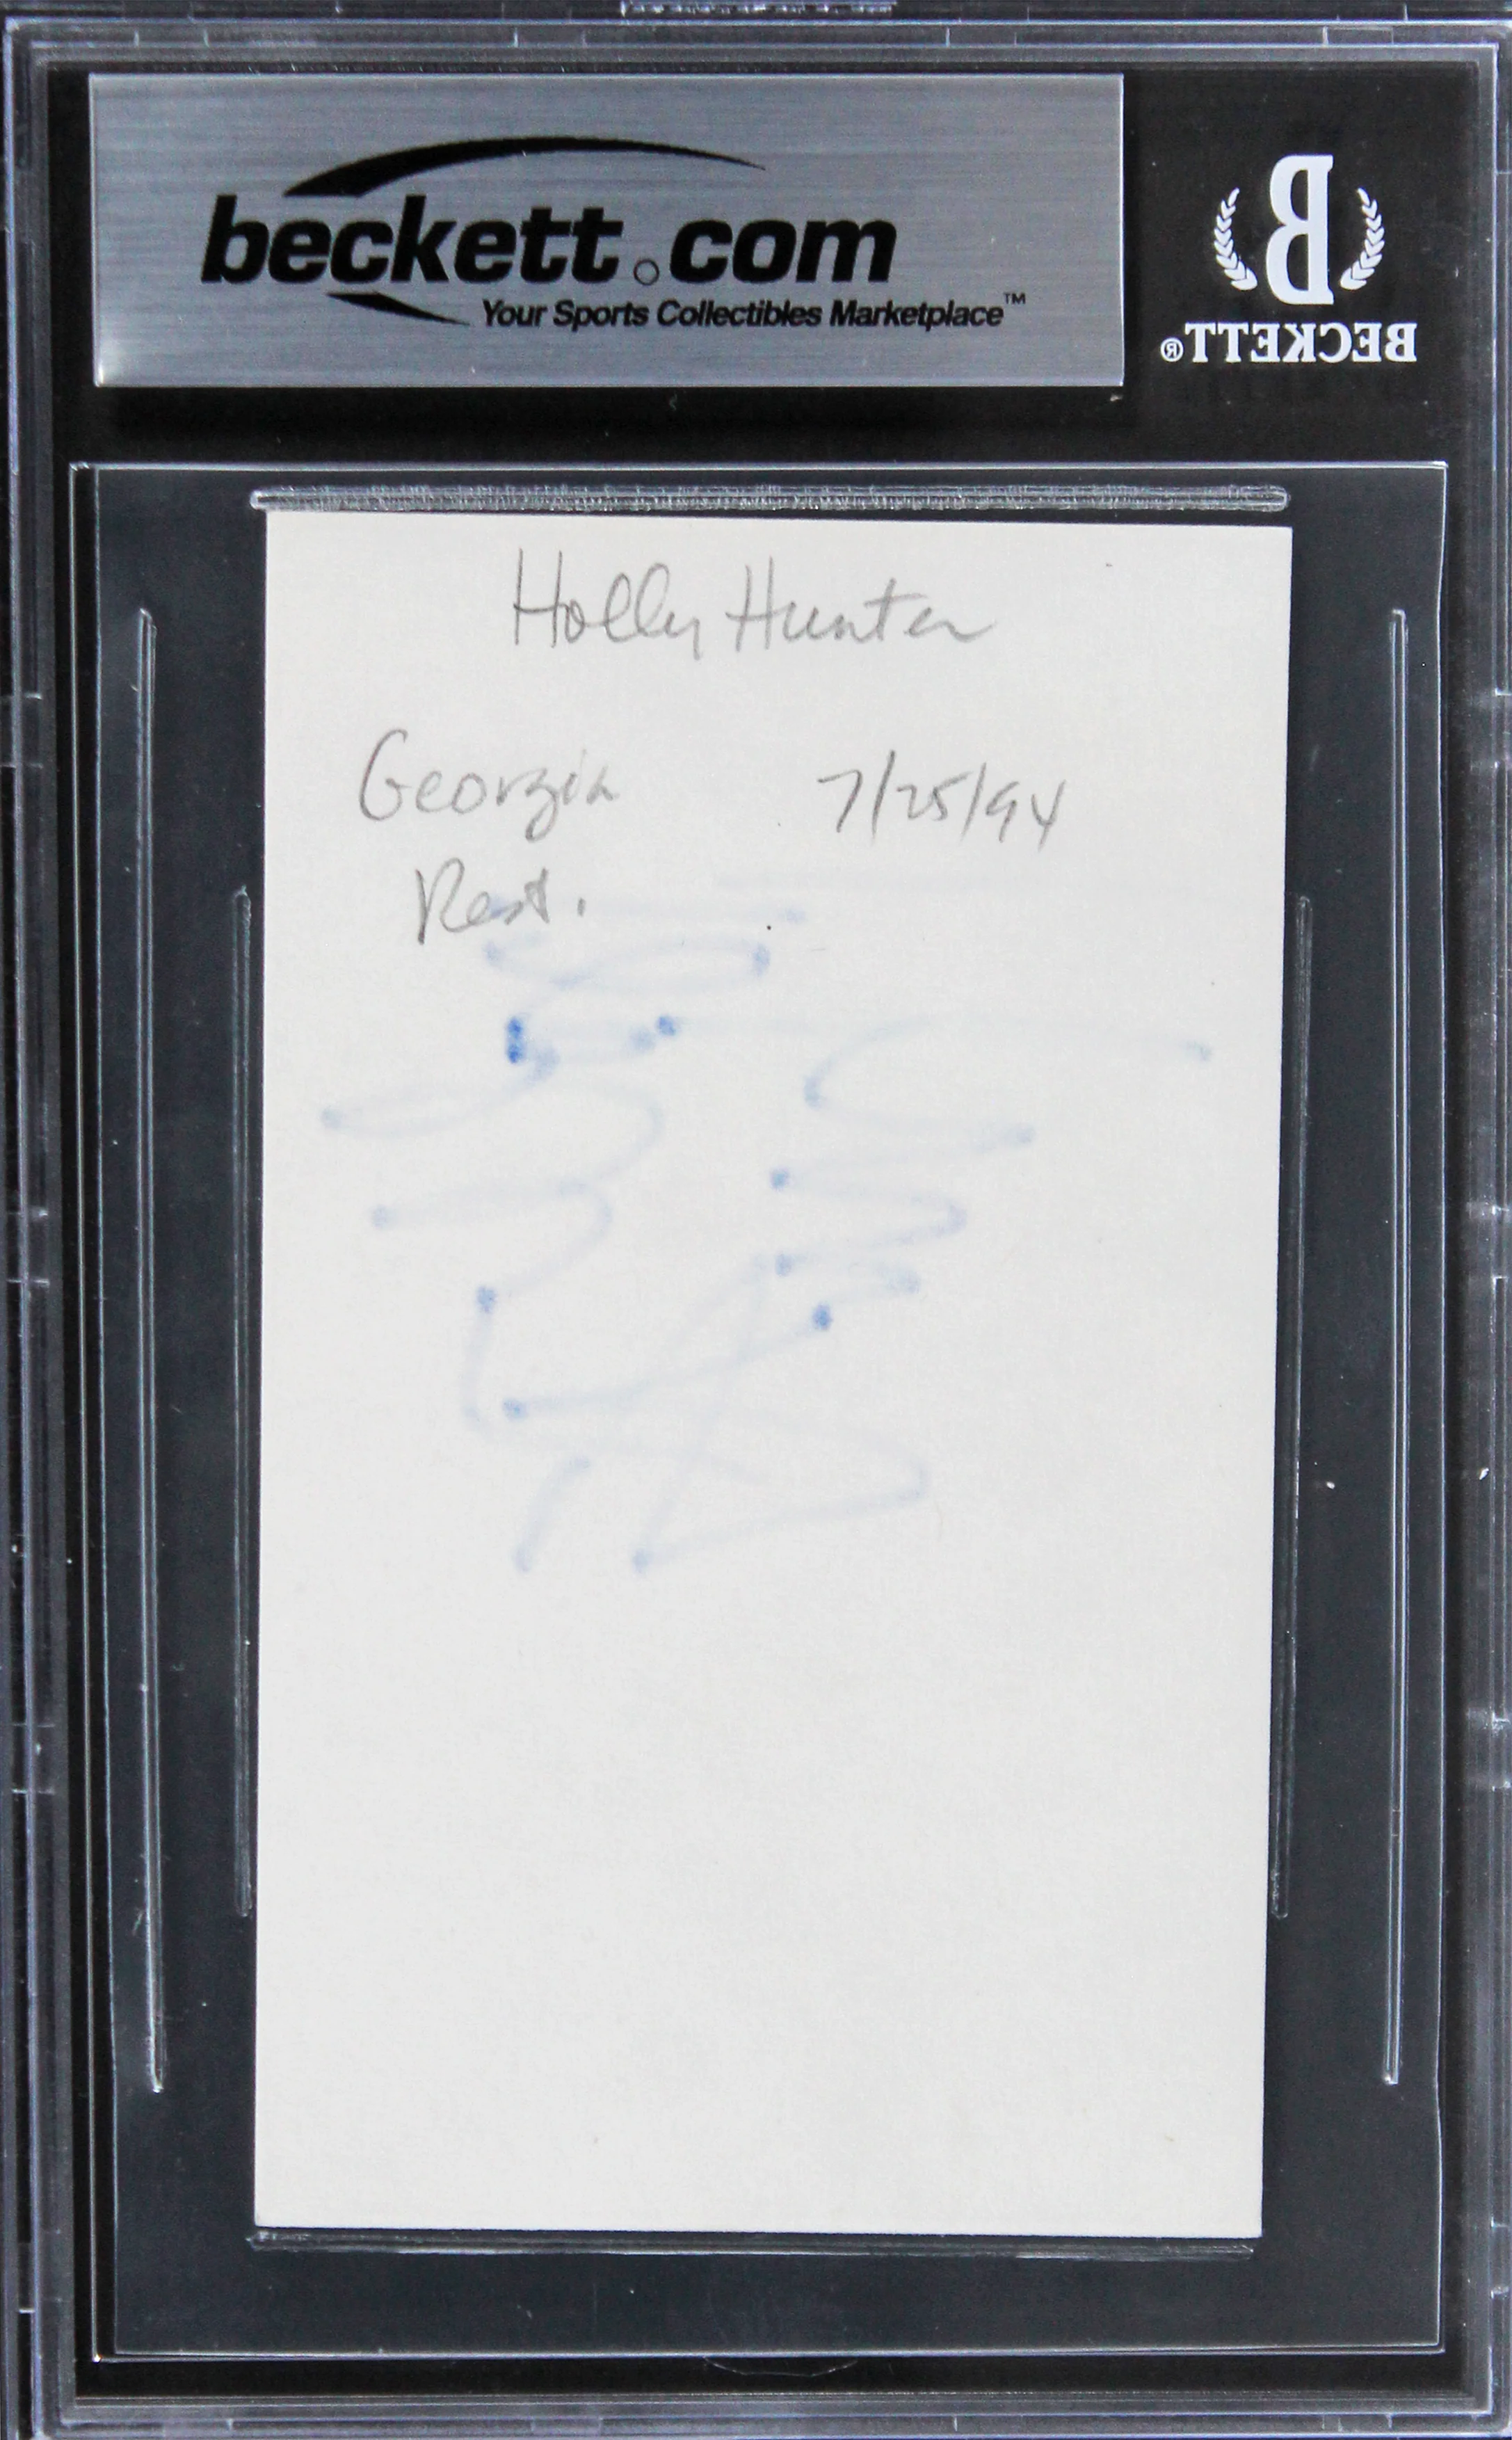 beckett.com
Your Sports Collectibles Marketplace™
B
BECKETT®
Holly Hunter
Georgia 7/25/94
Rest.